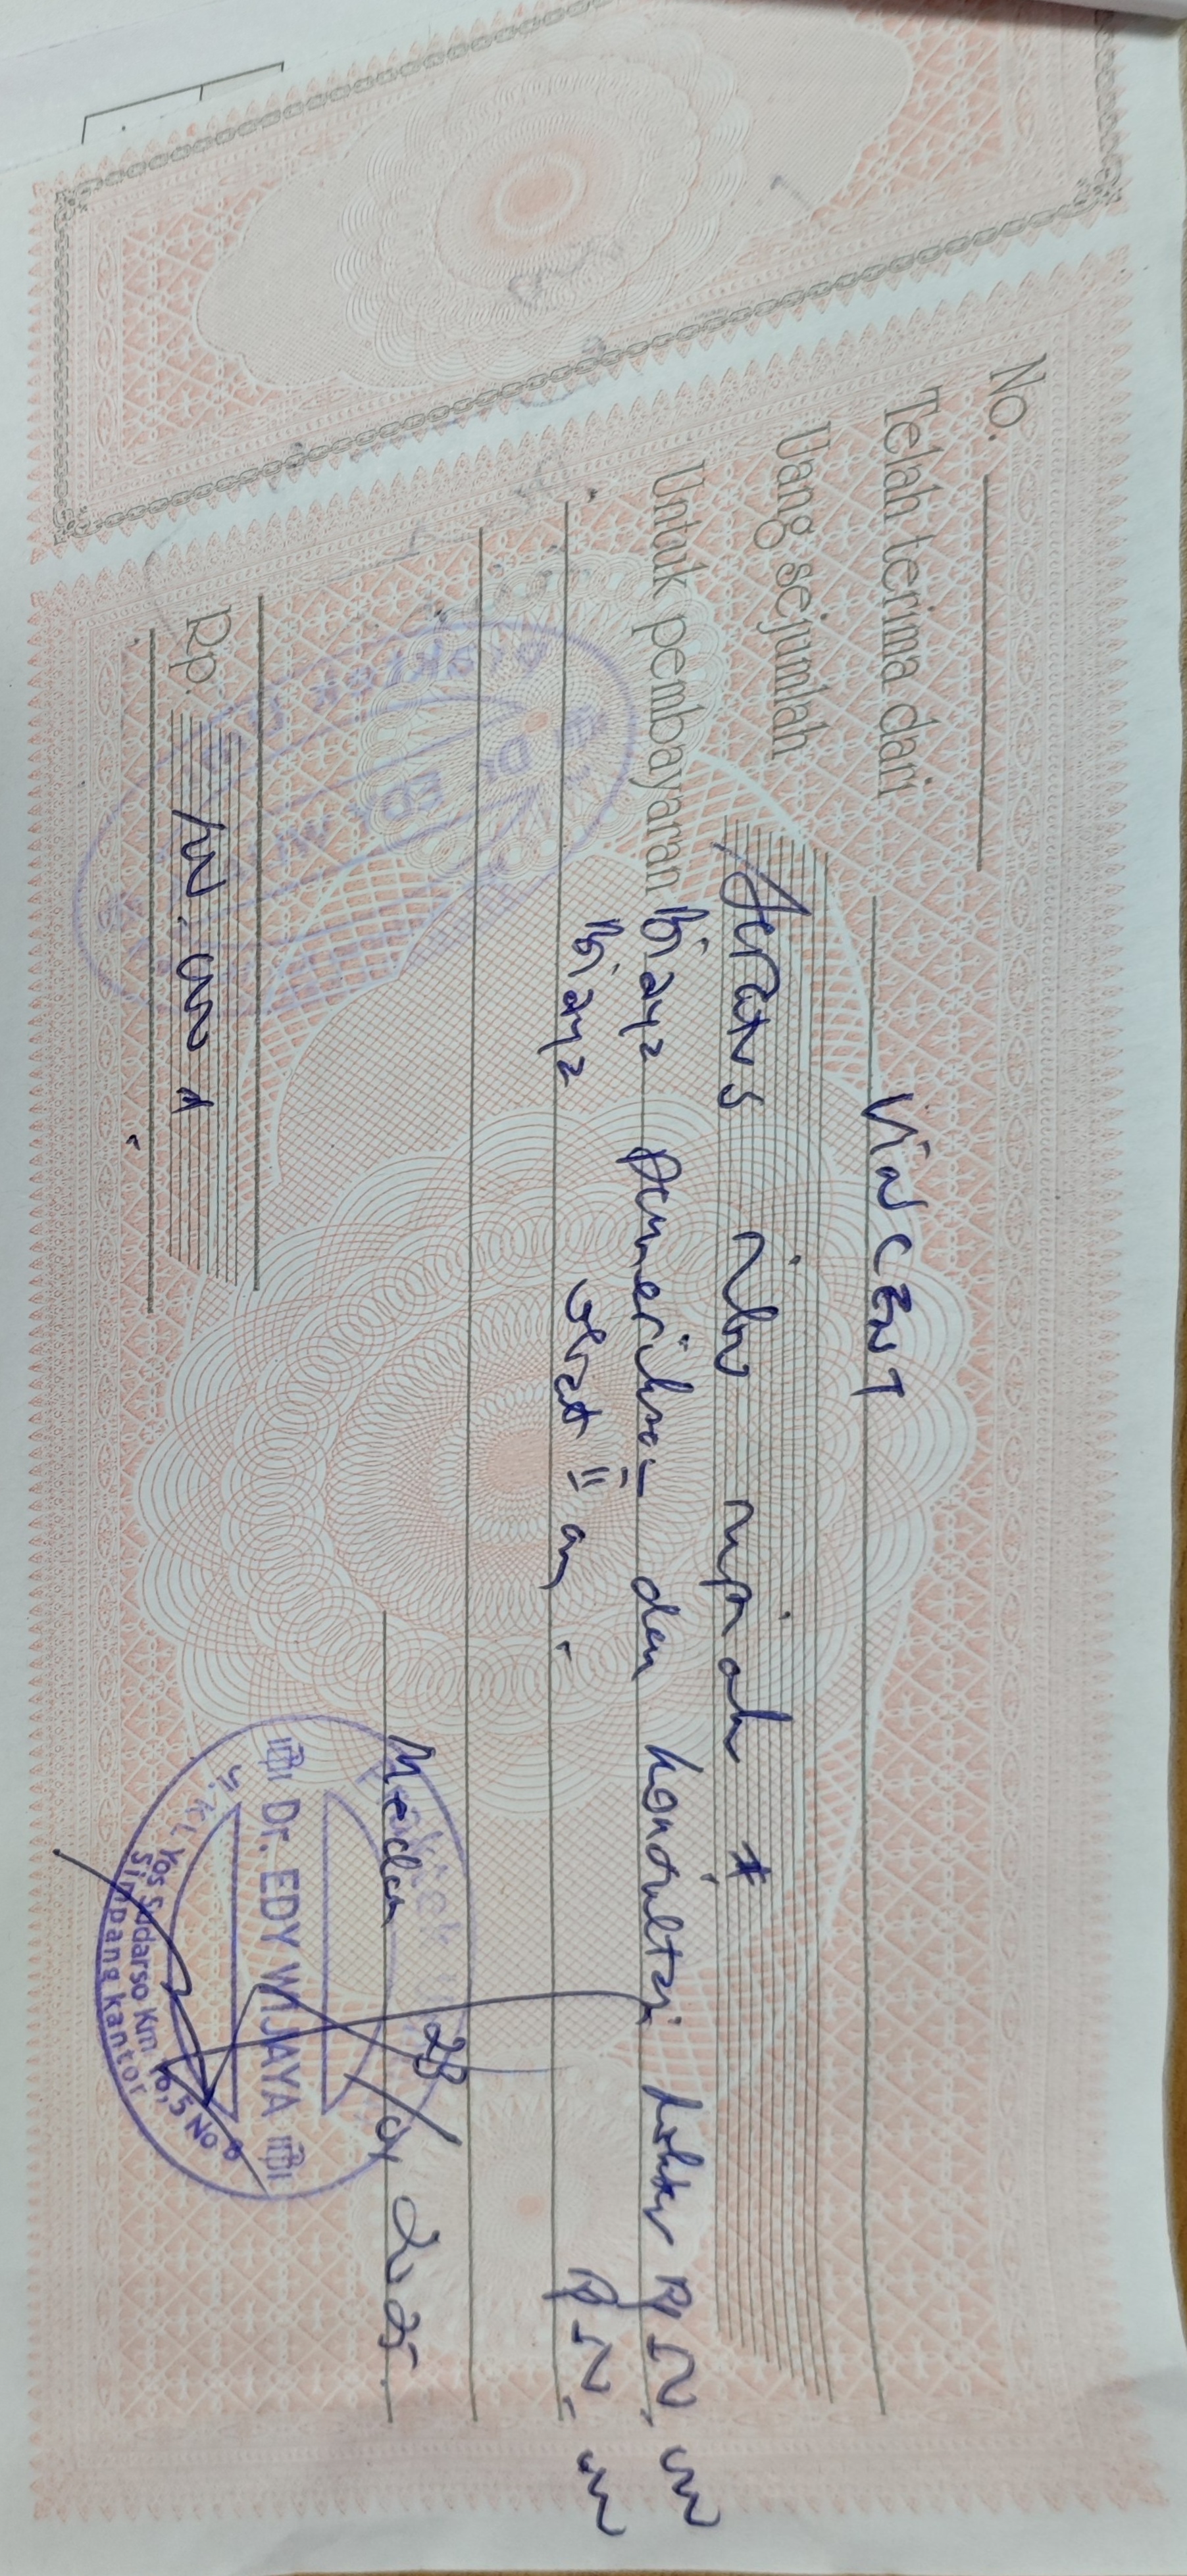 No.
Telah terima dari VINCENT
Uang sejumlah Seratus ribu rupiah #
Untuk pembayaran Biaya Pemeriksa= dan konsultasi dokter Rp 50.000
Biaya obat" an. Rp 50.000
Medan 2025.
Rp. 100.000
Dr. EDY WIJAYA
Jl. KL Yos Sudarso Km
Simpang kantor